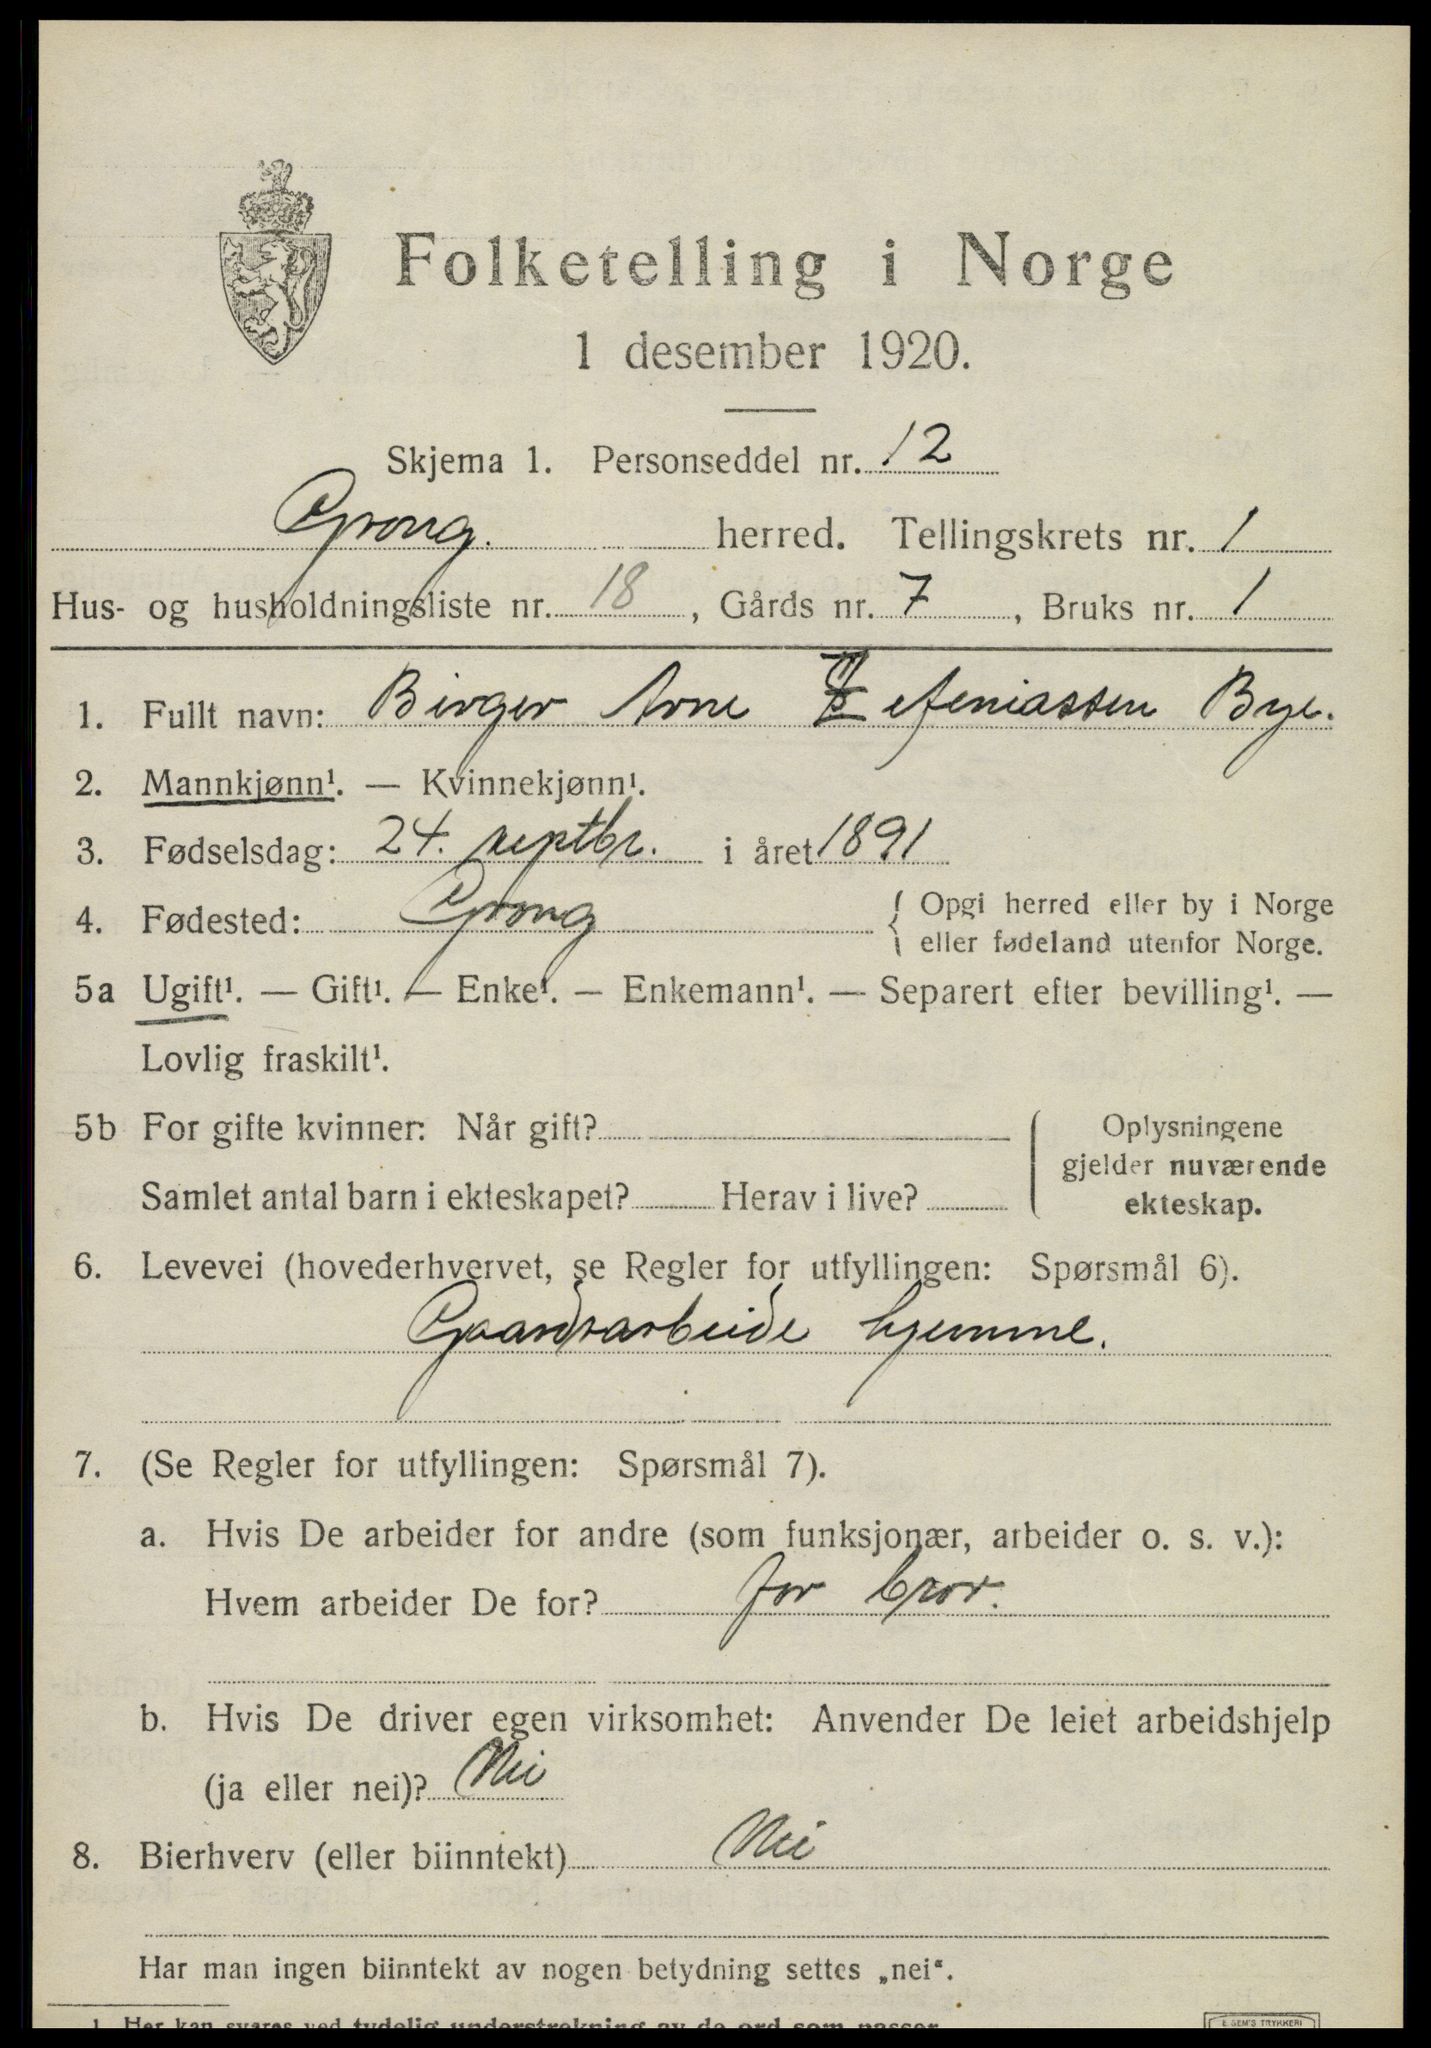 Folketelling i Norge
1 desember 1920.
Skjema 1. Personseddel nr. 12
Grong. herred. Tellingskrets nr. 1
Hus- og husholdningsliste nr. 18, Gårds nr. 7, Bruks nr. 1
1. Fullt navn: Birger Arne Zefeniassen Bye.
2. Mannkjønn¹. — Kvinnekjønn¹.
3. Fødselsdag: 24. septbr. i året 1891
4. Fødested: Grong { Opgi herred eller by i Norge
eller fødeland utenfor Norge.
5a Ugift¹. — Gift¹. — Enke¹. — Enkemann¹. — Separert efter bevilling¹. —
Lovlig fraskilt¹.
5b For gifte kvinner: Når gift?
Samlet antal barn i ekteskapet? Herav i live?
Oplysningene
gjelder nuværende
ekteskap.
6. Levevei (hovederhvervet, se Regler for utfyllingen: Spørsmål 6).
Gaardsarbeide hjemme.
7. (Se Regler for utfyllingen: Spørsmål 7).
a. Hvis De arbeider for andre (som funksjonær, arbeider o. s. v.):
Hvem arbeider De for? for bror.
b. Hvis De driver egen virksomhet: Anvender De leiet arbeidshjelp
(ja eller nei)? Nei
8. Bierhverv (eller biinntekt) Nei
Har man ingen biinntekt av nogen betydning settes „nei“.
1 Her kan svares ved tydelig understrekning av de ord som passer.
E. SEM'S TRYKKERI